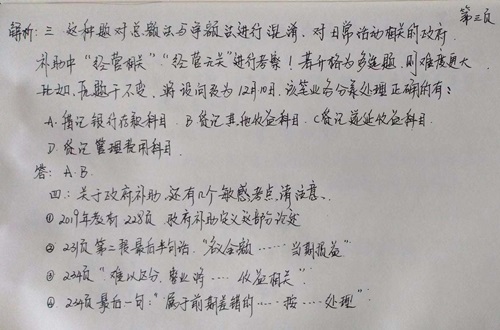 第三页
解析: 三、这种题对总额法与净额法进行混淆,对日常活动相关的政府
补助中“经营相关”“经营无关”进行考察!若升格为多选题,则难度更大
比如,原题干不变,将设问改为12月10日,该笔业务分录处理正确的有:
A.借记银行存款科目 B.贷记其他收益科目 C.贷记递延收益科目
D.贷记管理费用科目
答: A.B
四: 关于政府补助,还有几个敏感考点,请注意、
① 2019年教材228页 政府补助定义这部分论述
② 231页第二段最后半句话,“名义金额……当期损益”
③ 234页“难以区分,企业将……收益相关”
④ 234页最后一句:“属于前期差错的……按……处理”